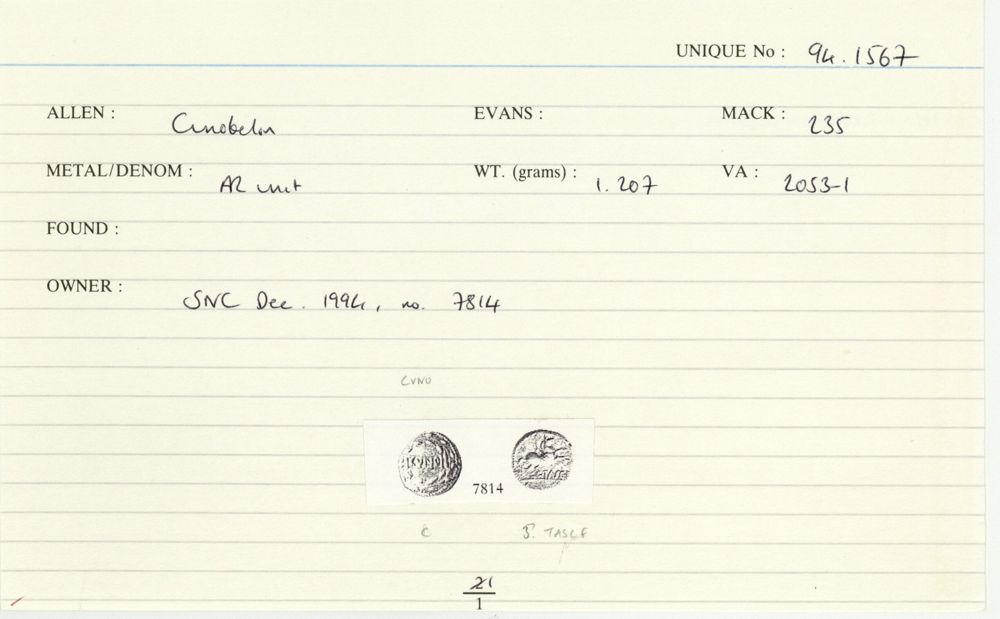 UNIQUE No : 94.1567
ALLEN : Cunobelin EVANS : MACK : 235
METAL/DENOM : AR unit WT. (grams) : 1.207 VA : 2053-1
FOUND :
OWNER : SNC Dec. 1994, no. 7814
CVNO
7814
C TASCF
21
1